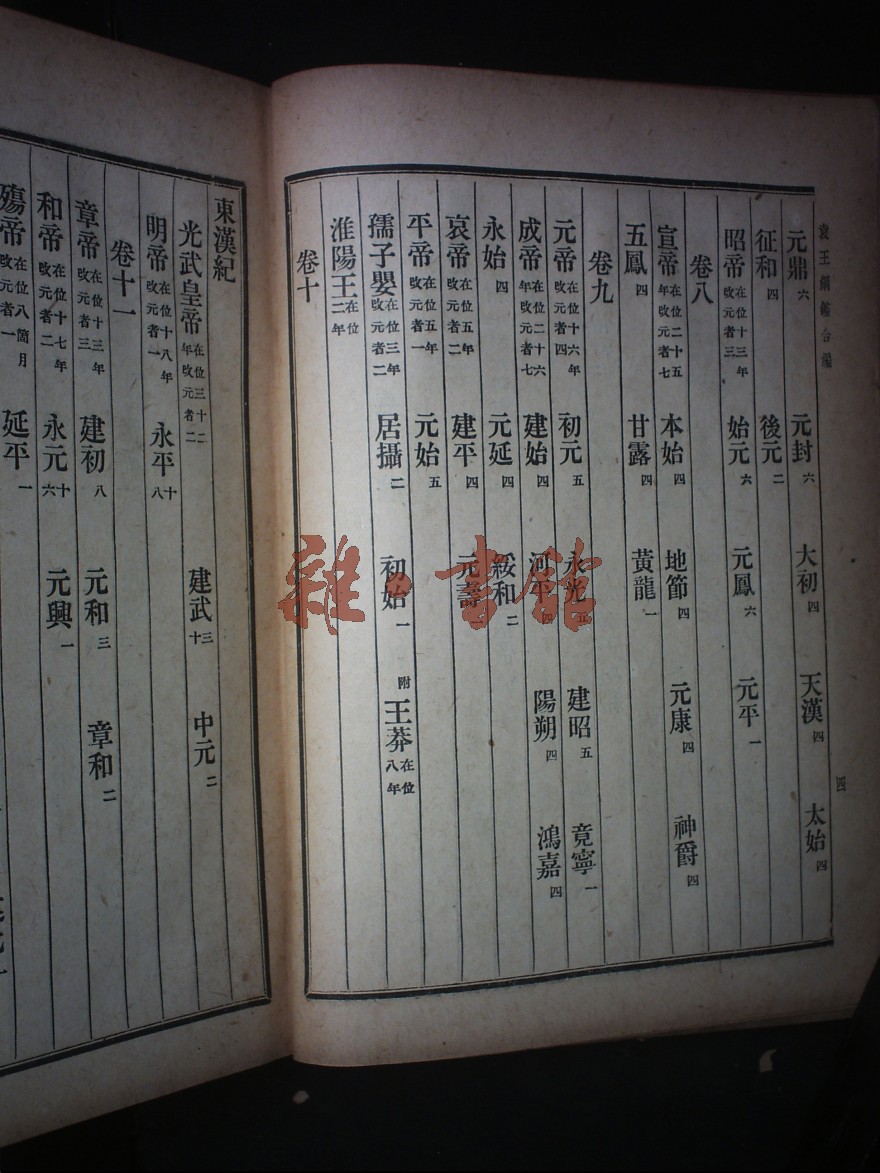 袁王綱鑑合編
四
元鼎六 元封六 大初四 天漢四 太始四
征和四 後元二
昭帝在位十三年改元者三 始元六 元鳳六 元平一
卷八
宣帝在位二十五年改元者七 本始四 地節四 元康四 神爵四
五鳳四 甘露四 黃龍一
卷九
元帝在位十六年改元者四 初元五 永光五 建昭五 竟寧一
成帝在位二十六年改元者七 建始四 河平四 陽朔四 鴻嘉四
永始四 元延四 綏和二
哀帝在位五年改元者二 建平四 元壽
平帝在位五年改元者一 元始五
孺子嬰在位三年改元者二 居攝二 初始一 附王莽在位八年
淮陽王在位二年
卷十
東漢紀
光武皇帝在位三十二年改元者二 建武三十 中元二
明帝在位十八年改元者一 永平十八
卷十一
章帝在位十三年改元者三 建初八 元和三 章和二
和帝在位十七年改元者二 永元十六 元興一
殤帝在位八箇月改元者一 延平一
雜·書館